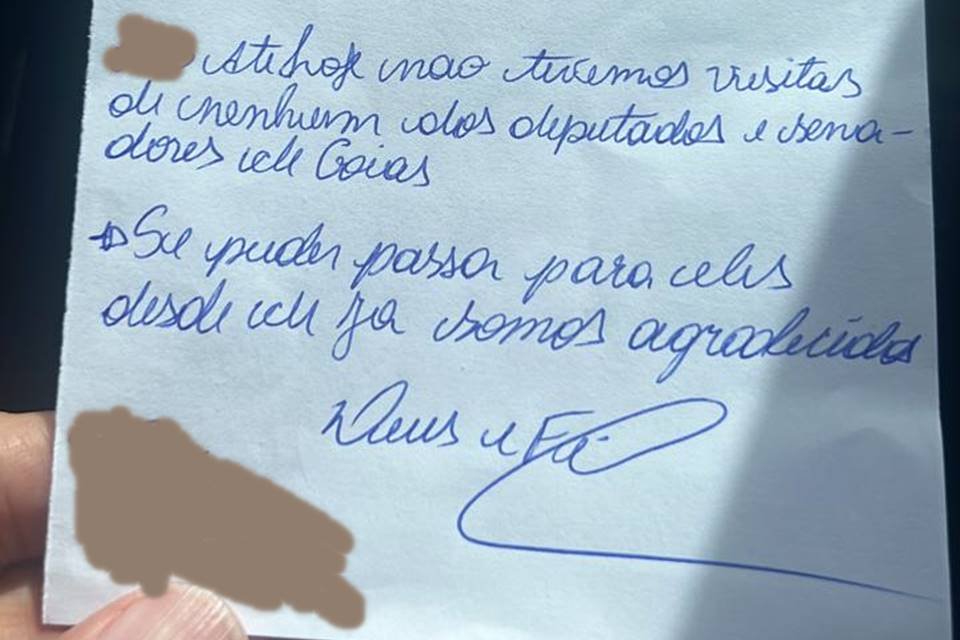 Ate hoje nao tivemos visitas
de nenhum dos deputados e sena-
dores de Goias
→ Se puder passar para eles
desde de ja somos agradecidos
Deus e Fé